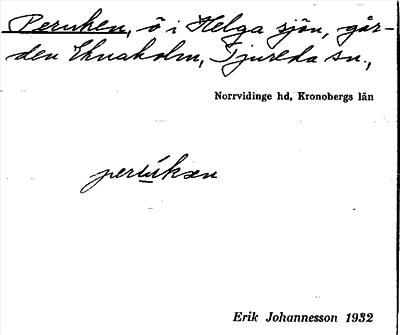 Peruken, ö i Helga sjön, går-
den Eknaholm, Tjureda sn.,
Norrvidinge hd, Kronobergs län
perúkan
Erik Johannesson 1932